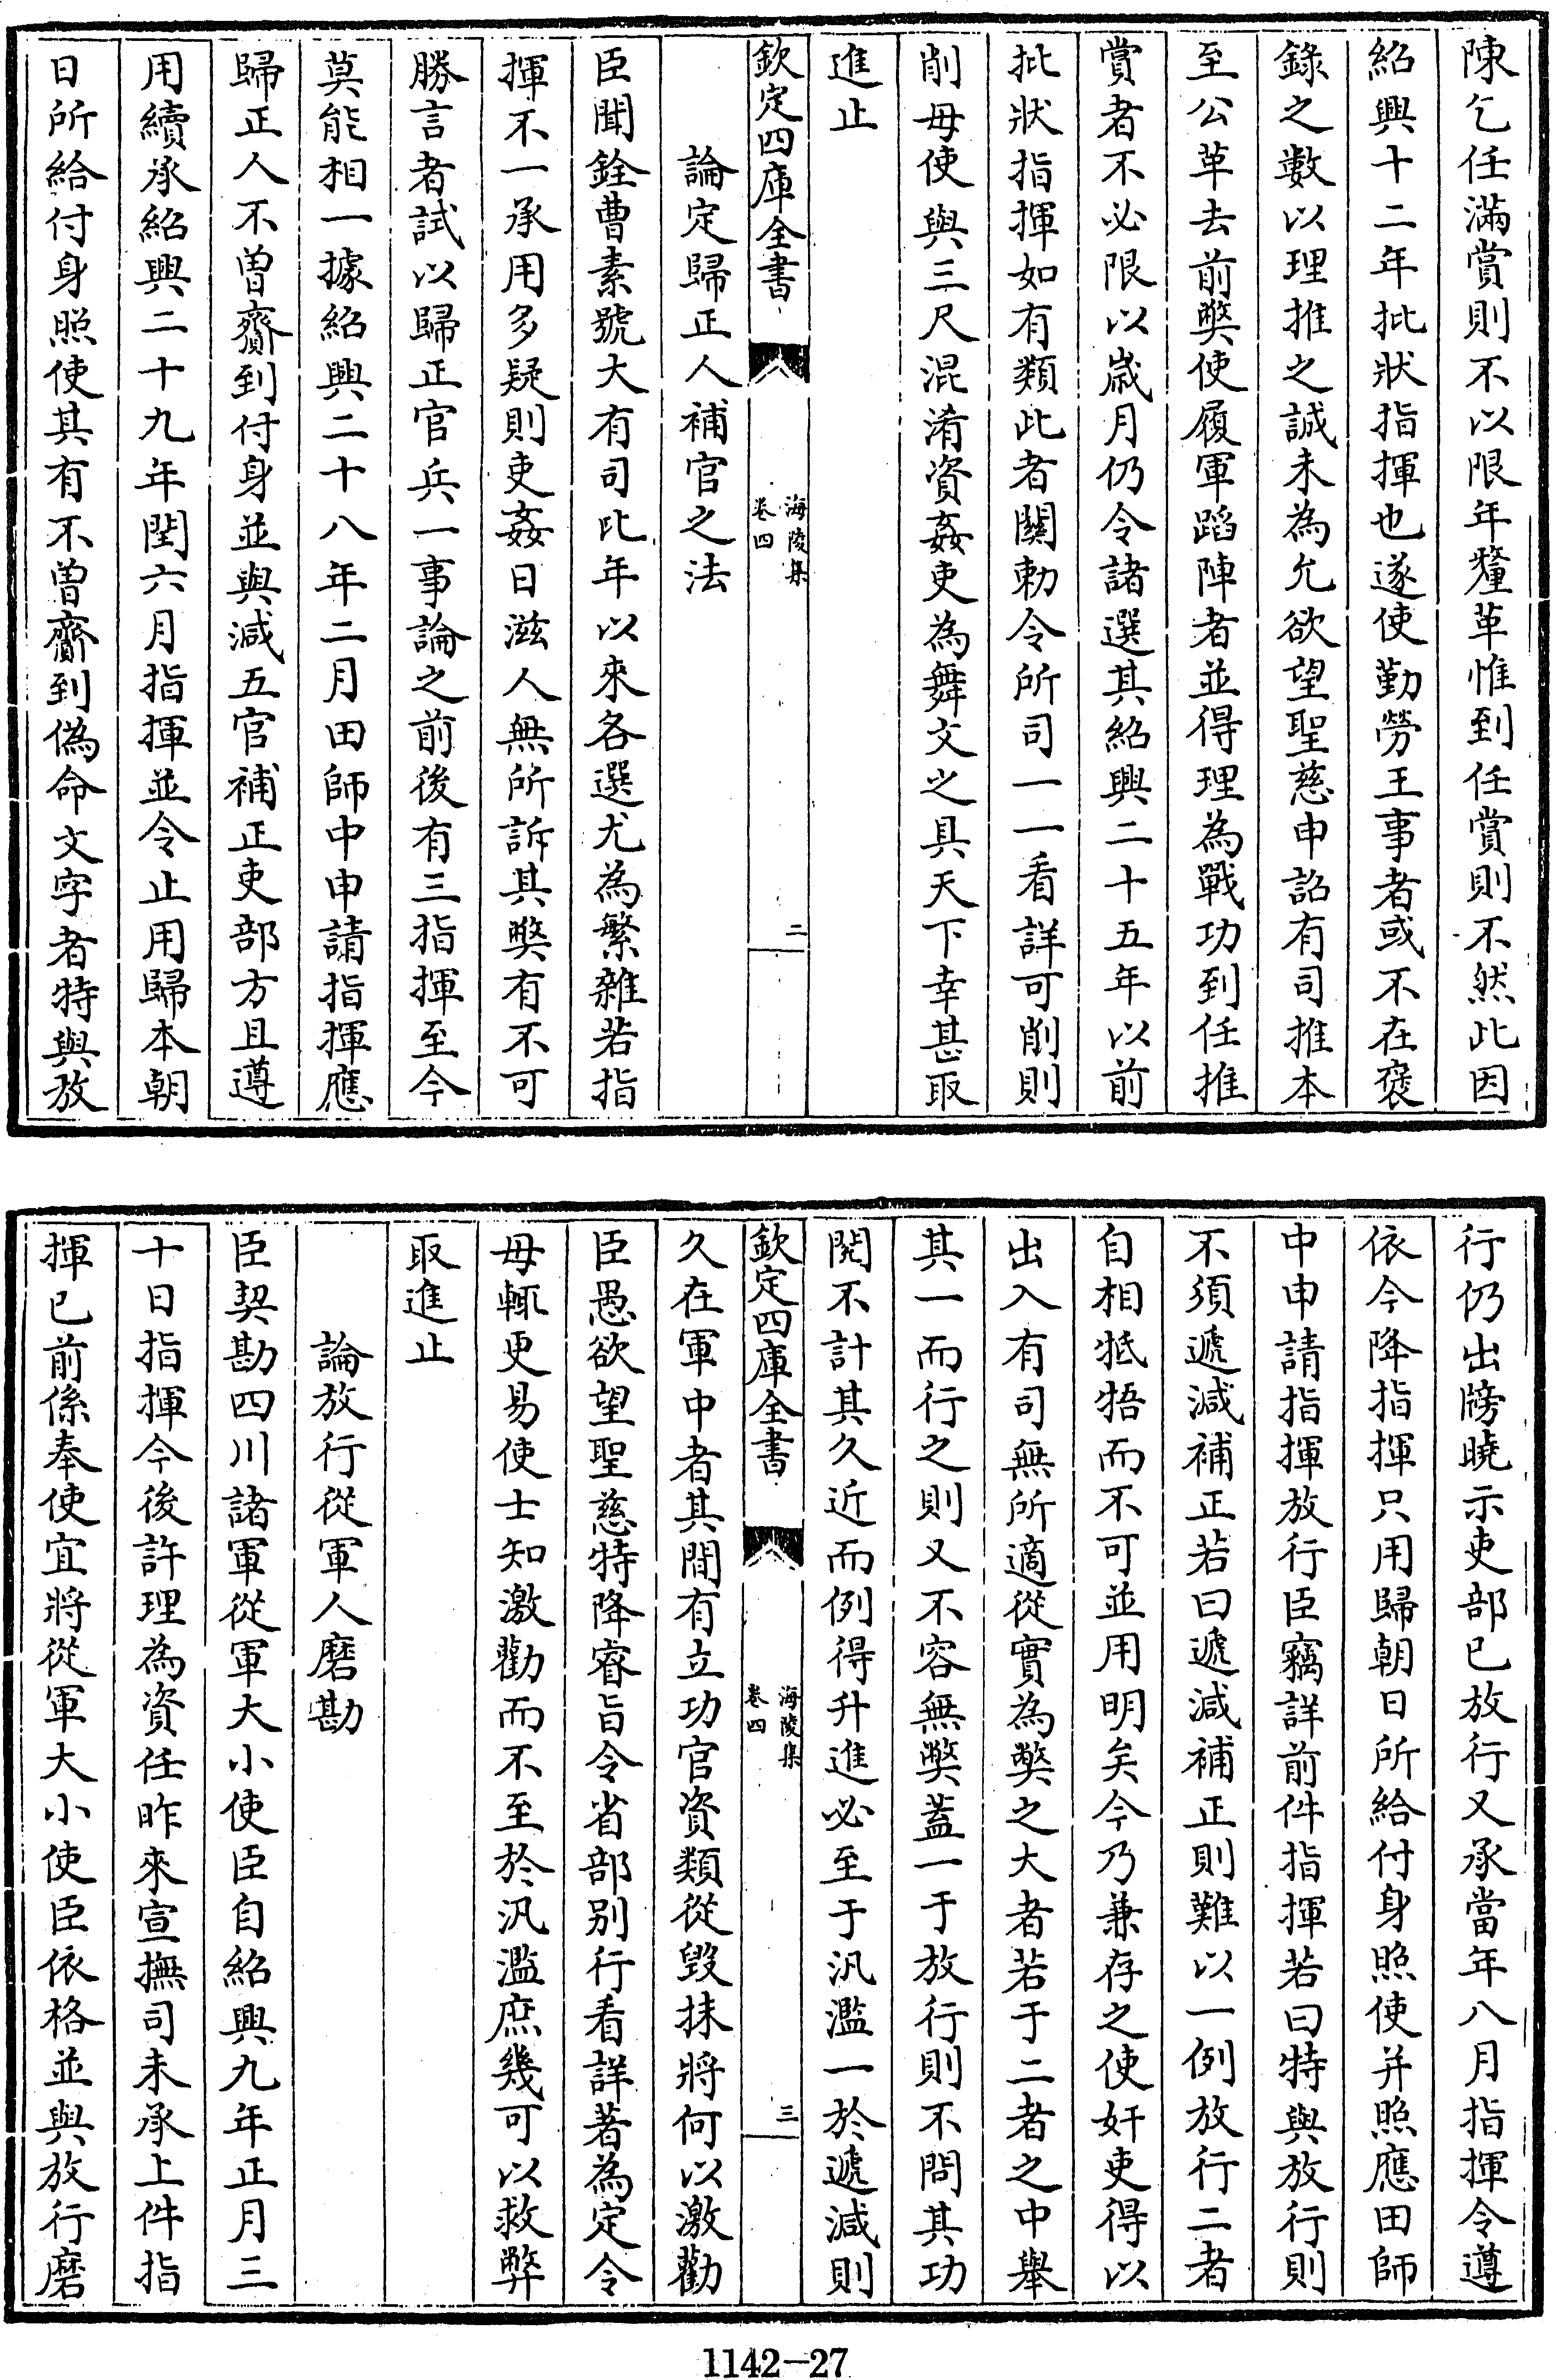 陳乞任滿賞則不以限年釐革惟到任賞則不然此因
紹興十二年批狀指揮也遂使勤勞王事者或不在褒
錄之數以理推之誠未為允欲望聖慈申詔有司推本
至公革去前弊使履軍蹈陣者並得理為戰功到任推
賞者不必限以歲月仍令諸選其紹興二十五年以前
批狀指揮如有類此者關勅令所司一一看詳可削則
削毋使與三尺混淆資姦吏為舞文之具天下幸甚取
進止
欽定四庫全書
海陵集
卷四
二
論定歸正人補官之法
臣聞銓曹素號大有司比年以來各選尤為繁雜若指
揮不一承用多疑則吏姦日滋人無所訴其弊有不可
勝言者試以歸正官兵一事論之前後有三指揮至今
莫能相一據紹興二十八年二月田師中申請指揮應
歸正人不曾齎到付身並與減五官補正吏部方且遵
用續承紹興二十九年閏六月指揮並令止用歸本朝
日所給付身照使其有不曾齎到偽命文字者特與放
行仍出牓曉示吏部已放行又承當年八月指揮令遵
依今降指揮只用歸朝日所給付身照使并照應田師
中申請指揮放行臣竊詳前件指揮若曰特與放行則
不須遞減補正若曰遞減補正則難以一例放行二者
自相牴牾而不可並用明矣今乃兼存之使奸吏得以
出入有司無所適從實為弊之大者若于二者之中舉
其一而行之則又不容無弊蓋一于放行則不問其功
閥不計其久近而例得升進必至于汎濫一於遞減則
欽定四庫全書
海陵集
卷四
三
久在軍中者其間有立功官資類從毀抹將何以激勸
臣愚欲望聖慈特降睿旨令省部別行看詳著為定令
毋輒更易使士知激勸而不至於汎濫庶幾可以救弊
取進止
論放行從軍人磨勘
臣契勘四川諸軍從軍大小使臣自紹興九年正月三
十日指揮今後許理為資任昨來宣撫司未承上件指
揮已前係奉使宜將從軍大小使臣依格並與放行磨
1142-27